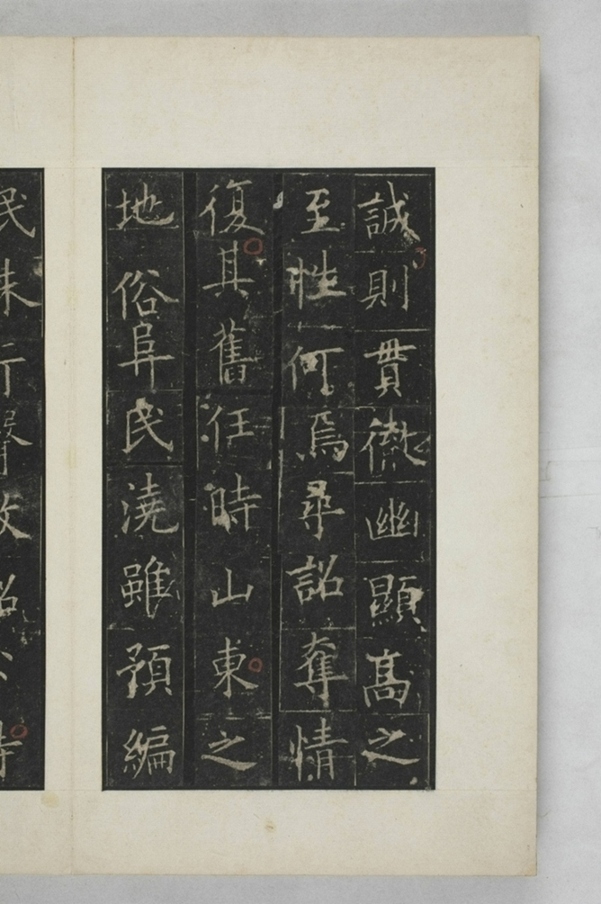 誠則貫徹幽顯高之
至性何焉尋詔奪情
復其舊任時山東之
地俗阜民澆雖預編
民未行聲教詔公持